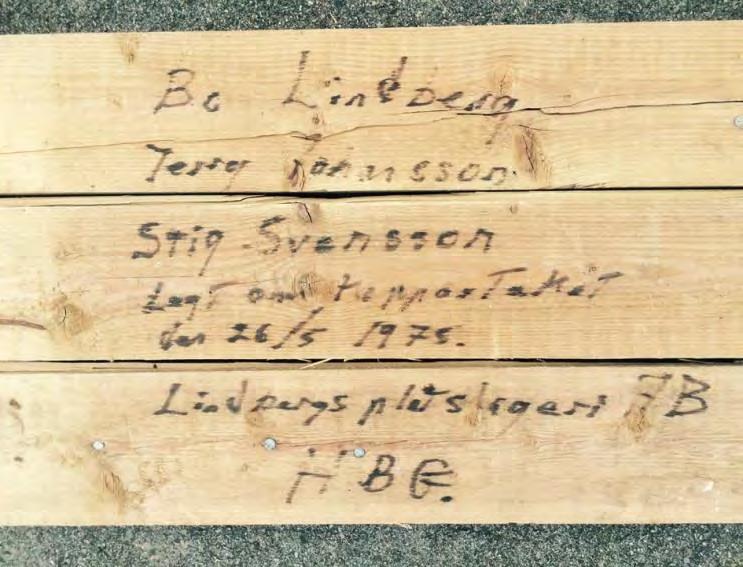 Bo Lindberg
Jerry Johansson
Stig Svensson
Lagt om koppartaket
den 26/5 1975.
Lindbergs plåtslageri AB
H B G.